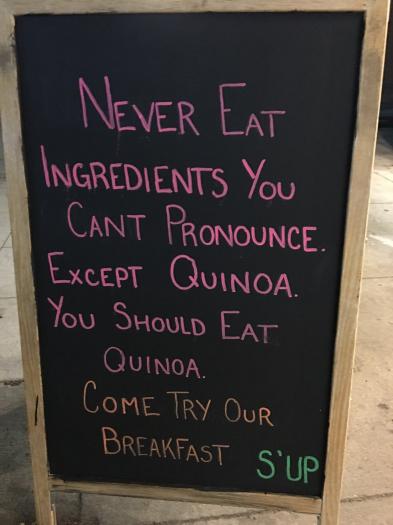 NEVER EAT
INGREDIENTS YOU
CANT PRONOUNCE.
EXCEPT QUINOA.
YOU SHOULD EAT
QUINOA.
COME TRY OUR
BREAKFAST S'UP